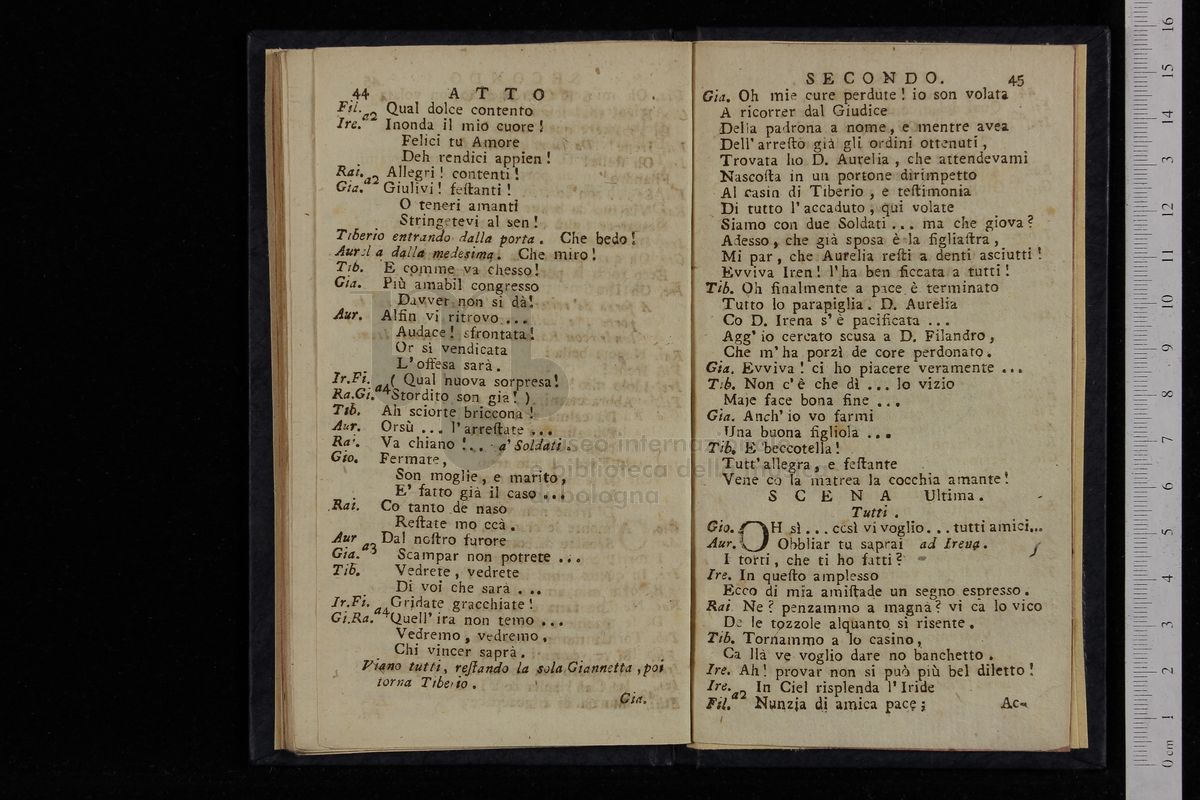 44 A T T O
Fil. a2 Qual dolce contento
Ire. Inonda il mio cuore!
Felici tu Amore
Deh rendici appien!
Rai. a2 Allegri! contenti!
Gia. Giulivi! feſtanti!
O teneri amanti
Stringetevi al sen!
Tiberio entrando dalla porta. Che bedo!
Aurelia dalla medesima. Che miro!
Tib. E comme va chesso!
Gia. Più amabil congresso
Davver non si dà!
Aur. Alfin vi ritrovo ...
Audace! sfrontata!
Or si vendicata
L'offesa sarà.
Ir.Fi. a4 ( Qual nuova sorpresa!
Ra.Gi. Stordito son gia! )
Tib. Ah sciorte briccona!
Aur. Orsù ... l'arreſtate ...
Rai. Va chiano!... a' Soldati.
Gio. Fermate,
Son moglie, e marito,
E' fatto già il caso ...
Rai. Co tanto de naso
Reſtate mo ccà.
Aur a3 Dal noſtro furore
Gia. Scampar non potrete ...
Tib. Vedrete, vedrete
Di voi che sarà ...
Ir.Fi. a4 Gridate gracchiate!
Gi.Ra. Quell' ira non temo ...
Vedremo, vedremo,
Chi vincer saprà.
Viano tutti, reſtando la sola Giannetta, poi
torna Tiberio.
Gia.
S E C O N D O. 45
Gia. Oh mie cure perdute! io son volata
A ricorrer dal Giudice
Della padrona a nome, e mentre avea
Dell' arreſto già gli ordini ottenuti,
Trovata ho D. Aurelia, che attendevami
Nascoſta in un portone dirimpetto
Al casin di Tiberio, e teſtimonia
Di tutto l'accaduto, qui volate
Siamo con due Soldati... ma che giova?
Adesso, che già sposa è la figliaſtra,
Mi par, che Aurelia reſti a denti asciutti!
Evviva Iren! l'ha ben ficcata a tutti!
Tib. Oh finalmente a pace è terminato
Tutto lo parapiglia. D. Aurelia
Co D. Irena s'è pacificata ...
Agg' io cercato scusa a D. Filandro,
Che m'ha porzì de core perdonato.
Gia. Evviva! ci ho piacere veramente ...
Tib. Non c'è che dì ... lo vizio
Maje face bona fine ...
Gia. Anch' io vo farmi
Una buona figliola ...
Tib. E beccotella!
Tutt'allegra, e feſtante
Vene co la matrea la cocchia amante!
S C E N A Ultima.
Tutti.
Gio. OH sì... così vi voglio... tutti amici...
Aur. Obbliar tu saprai ad Irena.
I torti, che ti ho fatti?
Ire. In queſto amplesso
Ecco di mia amiſtade un segno espresso.
Rai Ne? penzammo a magnà? vi cà lo vico
De le tozzole alquanto si risente.
Tib. Tornammo a lo casino,
Ca llà ve voglio dare no banchetto.
Ire. Ah! provar non si può più bel diletto!
Ire. a2 In Ciel risplenda l'Iride
Fil. Nunzia di amica pace;
Ac-
museo internazionale
e biblioteca della musica
bologna
0 cm 1 2 3 4 5 6 7 8 9 10 11 12 13 14 15 16